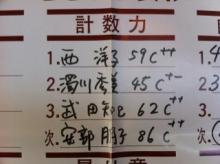 計数力
1. 西 洋子 59C++
2. 濁川秀美 45C+-
3. 武田知己 62C++
次. 安部朋子 86C++